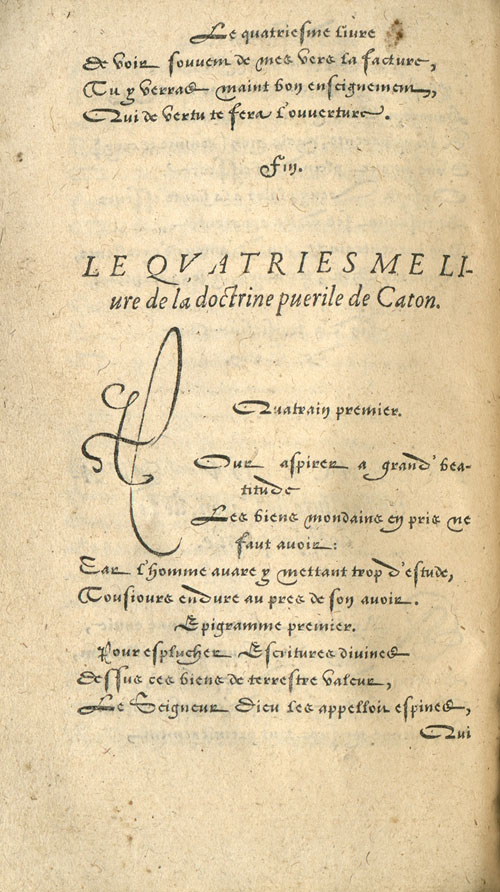 Le quatriesme liure
De voir souuent de mes vers la facture,
Tu y verras maint bon enseignement,
Qui de vertu te fera l'ouuerture.
Fin.
LE QVATRIESME LI-
ure de la doctrine puerile de Caton.
Quatrain premier.
Pour aspirer a grand' bea-
titude
Les biens mondains en pris ne
faut auoir:
Car l'homme auare y mettant trop d'estude,
Tousiours endure au pres de son auoir.
Epigramme premier.
Pour esplucher Escritures diuines
Dessus ces biens de terrestre valeur,
Le Seigneur Dieu les appelloit espines,
Qui